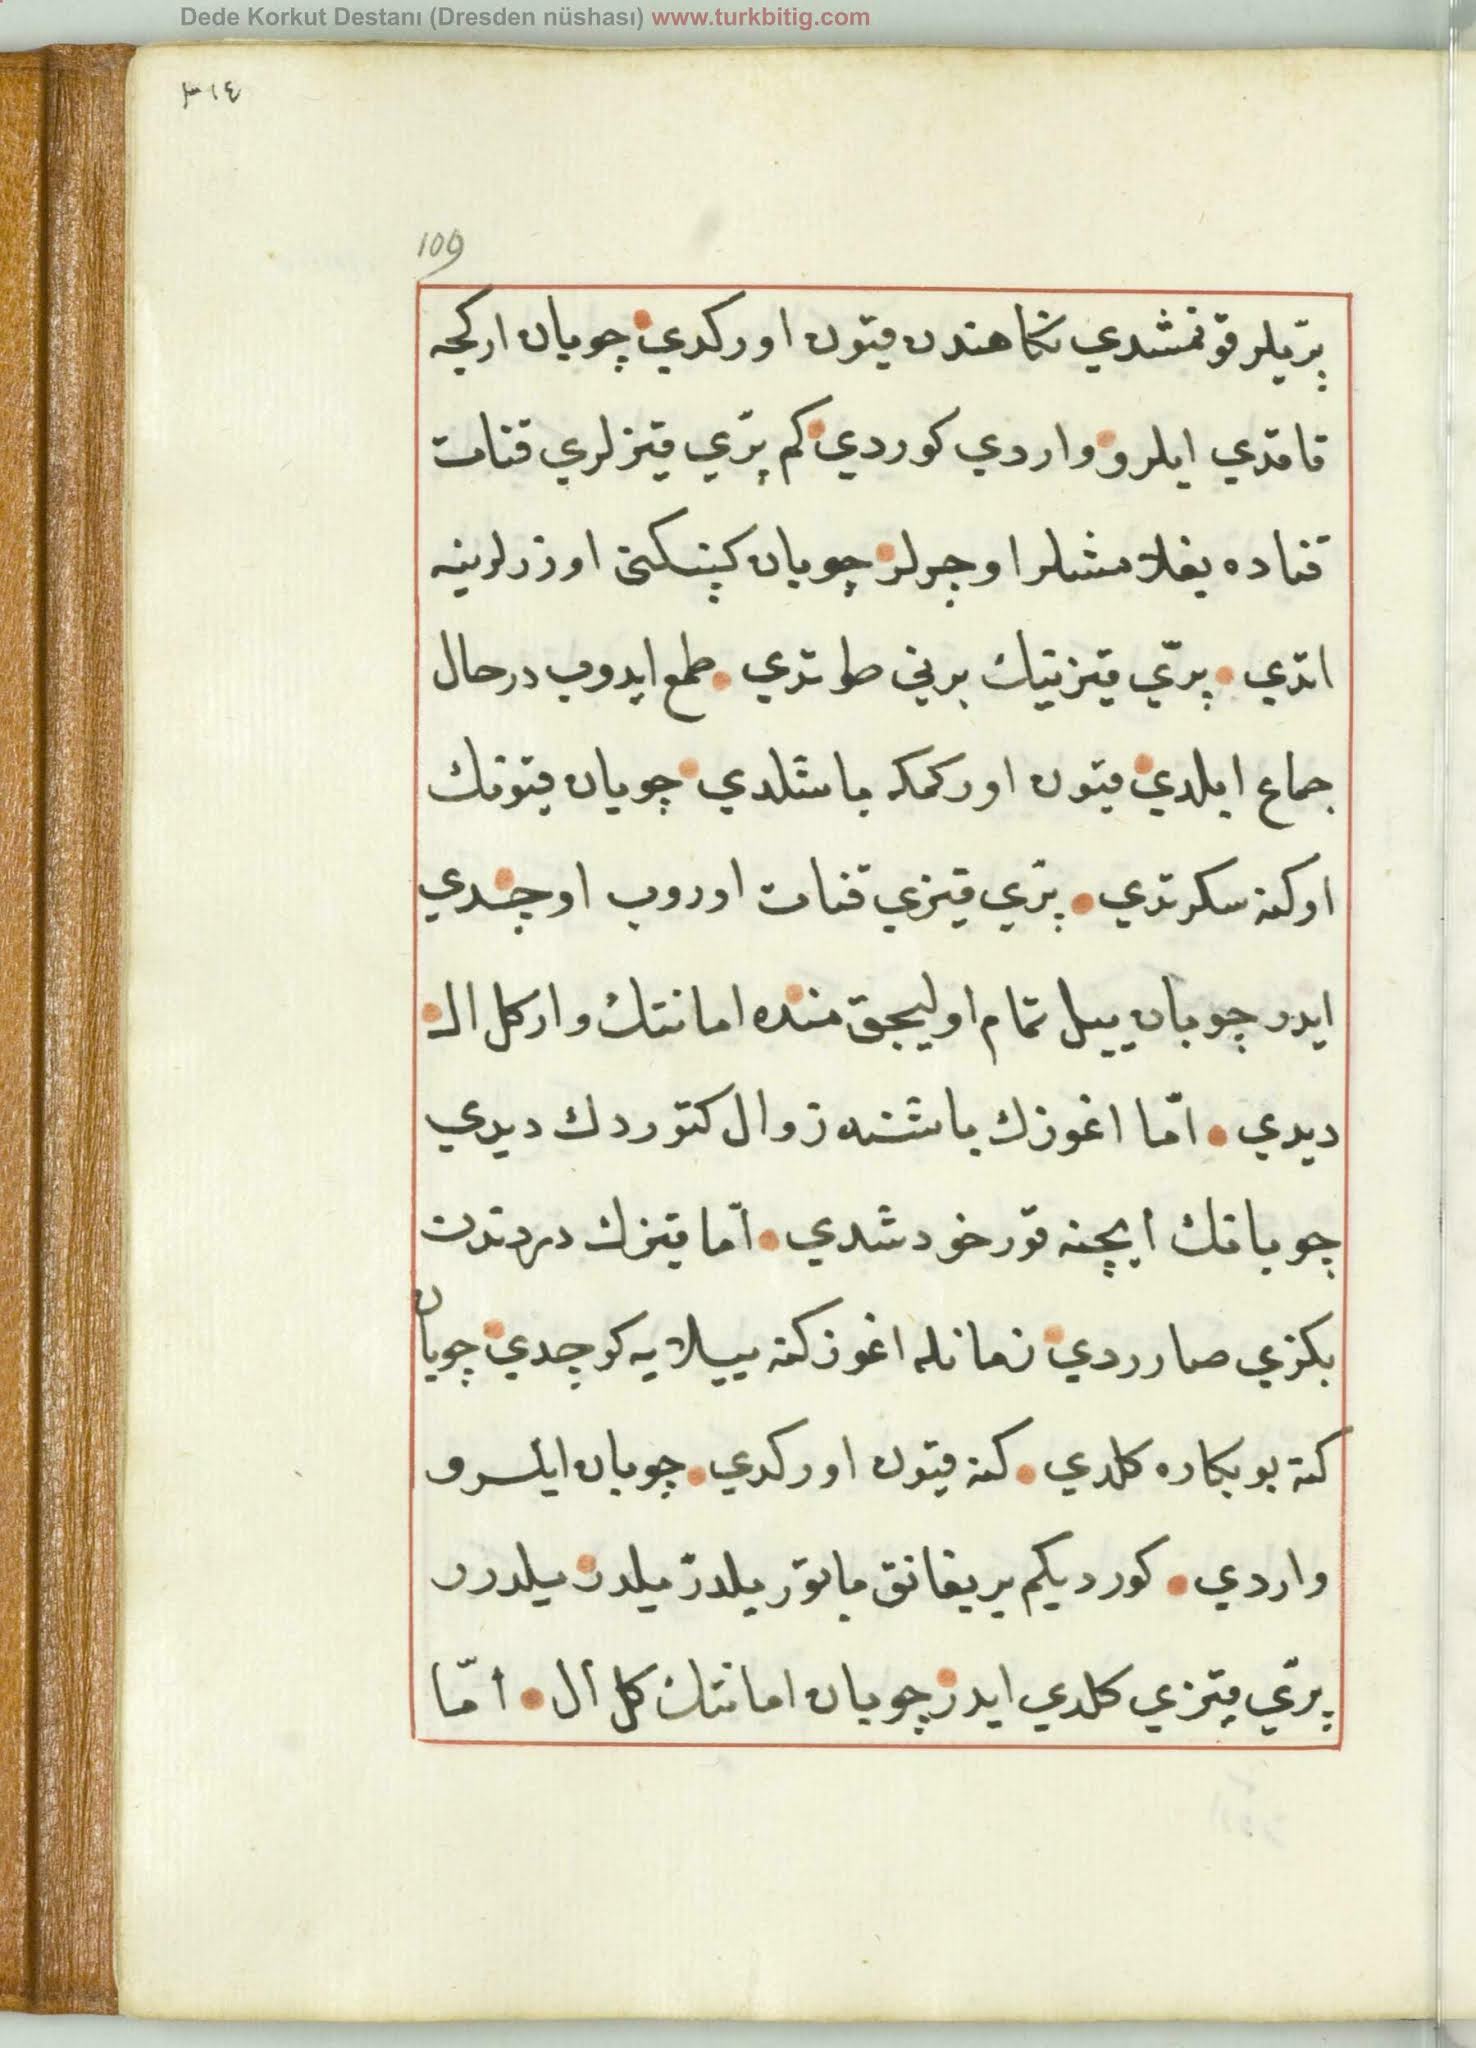 Dede Korkut Destanı (Dresden nüshası) www.turkbitig.com
٢١٤
109
پرّيلر قونمشدي نكاهندن قيون اوركدي چوبان اركجه
قاقدي ايلرو واردي كوردي كم پرّي قيزلري قنات
قناده بغلامشلر اوچرلر چوبان كپنكنى اوزرلرينه
اتدي پرّي قيزينيك برني طوتدي طمع ايدوب درحال
جماع ايلدي قيون اوركمكه باشلدي چوبان قيونك
اوكنه سكرتدي پرّي قيزي قنات اوروب اوچدي
ايدر چوبان ييل تمام اوليجق منده امانتك وار كل ال
ديدي امّا اغوزك باشنه زوال كتوردك ديدي
چوبانك ايچنه قورخو دشدي امّا قيزك دردندن
بكزي صاردي زمانله اغوز كنه ييلايه كوچدي چوبان
كنه بو بكاره كلدي كنه قيون اوركدي چوبان ايلرو
واردي كورديكم بر يغانق ياتور يلدر يلدر يلدرر
پرّي قيزي كلدي ايدر چوبان امانتك كل ال امّا